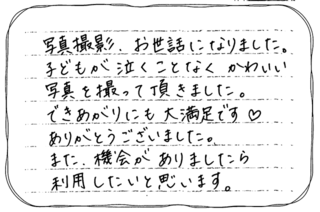 写真撮影、お世話になりました。
子どもが泣くことなくかわいい
写真を撮って頂きました。
できあがりにも大満足です♡
ありがとうございました。
また、機会がありましたら
利用したいと思います。